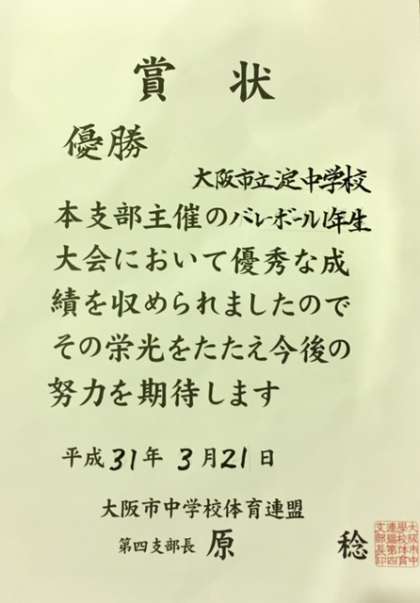 賞 状
優勝
大阪市立淀中学校
本支部主催のバレーボール1年生
大会において優秀な成
績を収められましたので
その栄光をたたえ今後の
努力を期待します
平成31年 3月21日
大阪市中学校体育連盟
第四支部長 原 稔